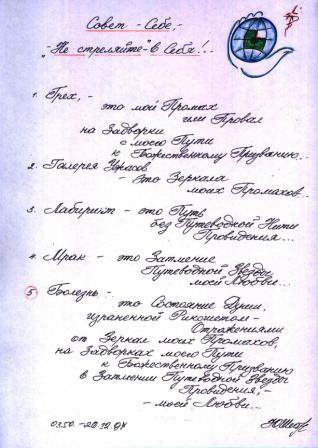 Совет - Себе, -
"Не стреляйте" в Себя!..
1. Грех, -
это мой Промах
или Провал
на Задворки
с моего Пути
к Божественному Призванию...
2. Галерея Ужасов
- это Зеркала
моих Промахов...
3. Лабиринт - это Путь
без Путеводной Нити
Провидения...
4. Мрак - это Затмение
Путеводной Звезды
моей Любви...
5. Болезнь -
это Состояние Души,
израненной Рикошетом -
Отражениями
от Зеркал моих Промахов,
на Задворках моего Пути
к Божественному Призванию
в Затмении Путеводной Звезды
Провидения, -
- моей Любви...